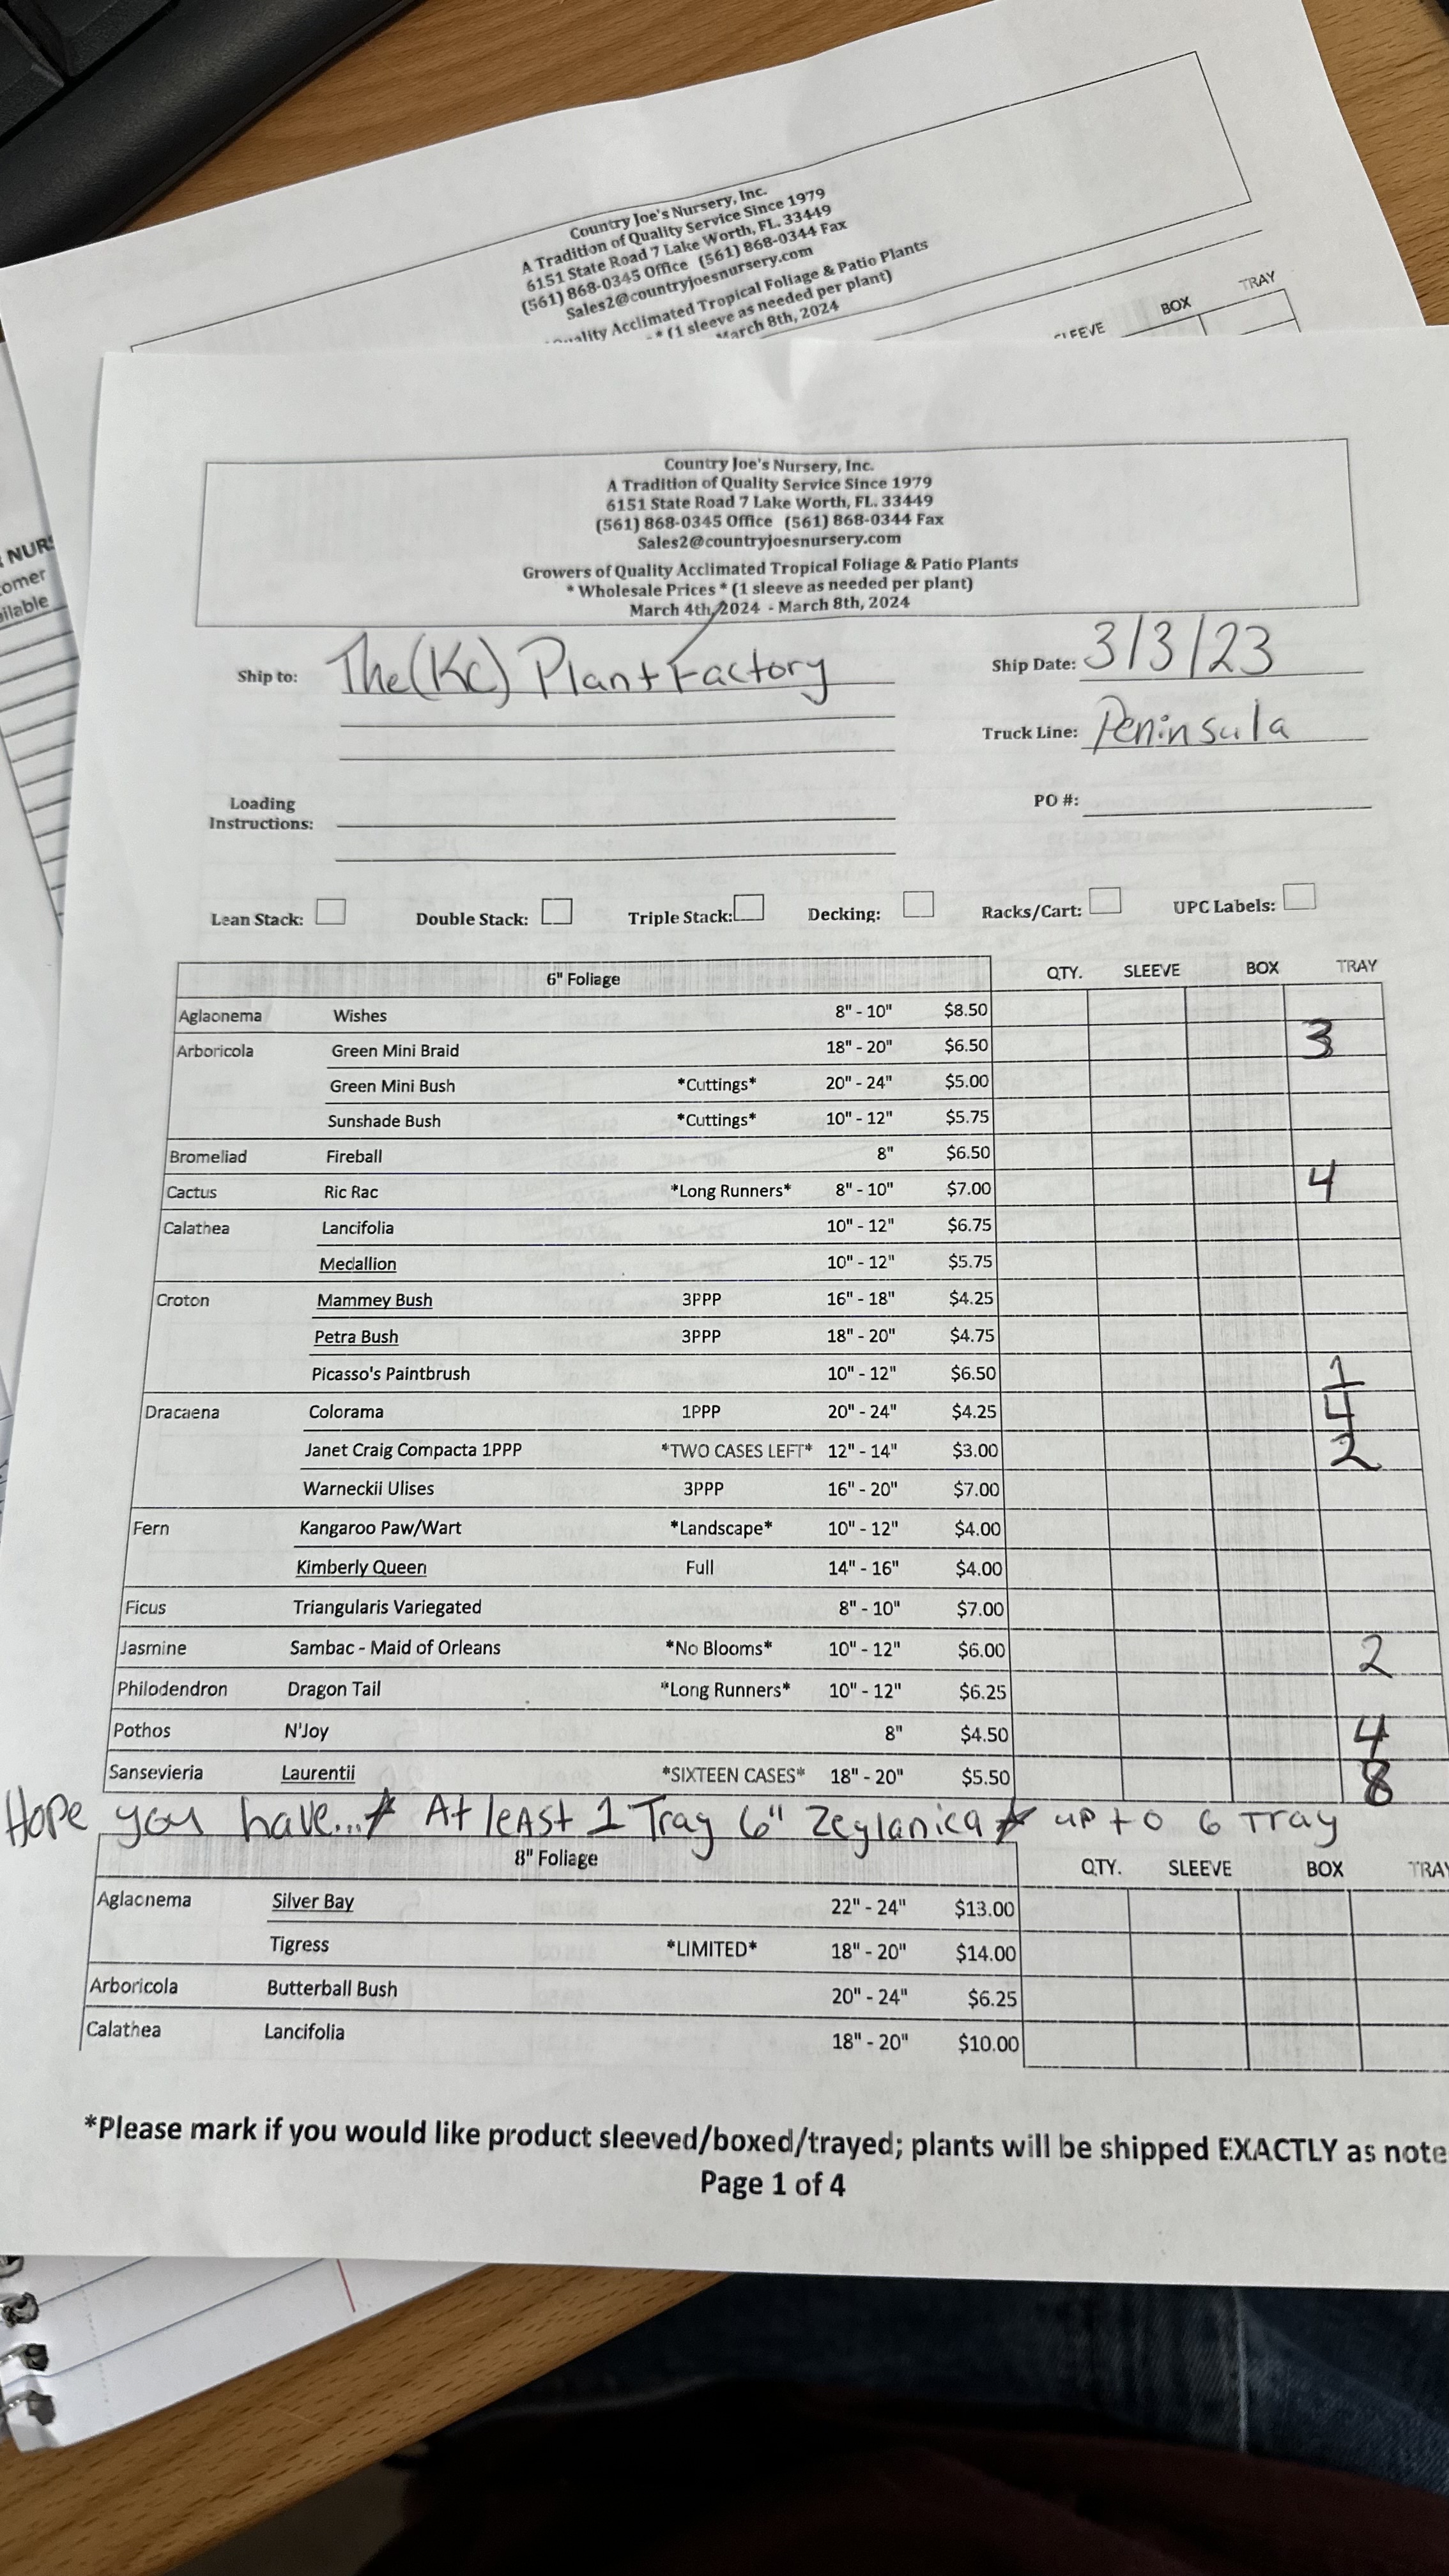 Country Joe's Nursery, Inc.
A Tradition of Quality Service Since 1979
6151 State Road 7 Lake Worth, FL. 33449
(561) 868-0345 Office (561) 868-0344 Fax
Sales2@countryjoesnursery.com
Quality Acclimated Tropical Foliage & Patio Plants
* (1 sleeve as needed per plant)
March 8th, 2024
SLEEVE BOX TRAY
Country Joe's Nursery, Inc.
A Tradition of Quality Service Since 1979
6151 State Road 7 Lake Worth, FL. 33449
(561) 868-0345 Office (561) 868-0344 Fax
Sales2@countryjoesnursery.com
Growers of Quality Acclimated Tropical Foliage & Patio Plants
* Wholesale Prices * (1 sleeve as needed per plant)
March 4th, 2024 - March 8th, 2024
Ship to: The (KC) Plant Factory Ship Date: 3/3/23
Truck Line: Peninsula
Loading Instructions: PO #:
Lean Stack: Double Stack: Triple Stack: Decking: Racks/Cart: UPC Labels:
6" Foliage QTY. SLEEVE BOX TRAY
Aglaonema Wishes 8" - 10" $8.50
Arboricola Green Mini Braid 18" - 20" $6.50 3
Green Mini Bush *Cuttings* 20" - 24" $5.00
Sunshade Bush *Cuttings* 10" - 12" $5.75
Bromeliad Fireball 8" $6.50
Cactus Ric Rac *Long Runners* 8" - 10" $7.00 4
Calathea Lancifolia 10" - 12" $6.75
Medallion 10" - 12" $5.75
Croton Mammey Bush 3PPP 16" - 18" $4.25
Petra Bush 3PPP 18" - 20" $4.75
Picasso's Paintbrush 10" - 12" $6.50 1
Dracaena Colorama 1PPP 20" - 24" $4.25 4
Janet Craig Compacta 1PPP *TWO CASES LEFT* 12" - 14" $3.00 2
Warneckii Ulises 3PPP 16" - 20" $7.00
Fern Kangaroo Paw/Wart *Landscape* 10" - 12" $4.00
Kimberly Queen Full 14" - 16" $4.00
Ficus Triangularis Variegated 8" - 10" $7.00
Jasmine Sambac - Maid of Orleans *No Blooms* 10" - 12" $6.00 2
Philodendron Dragon Tail *Long Runners* 10" - 12" $6.25
Pothos N'Joy 8" $4.50 4
Sansevieria Laurentii *SIXTEEN CASES* 18" - 20" $5.50 8
Hope you have...* At least 1 Tray 6" Zeylanica * up to 6 Tray
8" Foliage QTY. SLEEVE BOX TRAY
Aglaonema Silver Bay 22" - 24" $13.00
Tigress *LIMITED* 18" - 20" $14.00
Arboricola Butterball Bush 20" - 24" $6.25
Calathea Lancifolia 18" - 20" $10.00
*Please mark if you would like product sleeved/boxed/trayed; plants will be shipped EXACTLY as note
Page 1 of 4